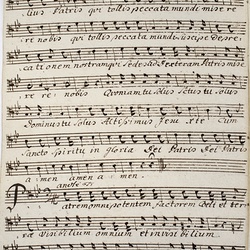 lius Patris qui tollis peccata mundi misere
re nobis qui tollis peccata mundi suscipe depre
cationem nostram qui Sedes ad dexteram Patris mise
re re nobis Quoniam tu solus Sctus tu solus
Dominus tu solus Altissimus Jesu xte Cum
Sancto Spiritu in gloria Dei Patris Dei Patris
Amen amen amen
Patrem omnipotentem, factorem Coeli et ter
rae visibilium omnium et invisibilium